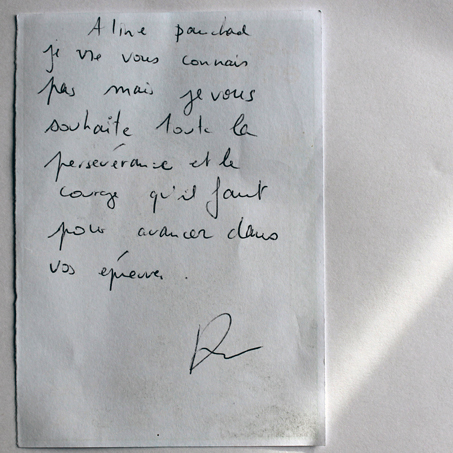 Aline pauchad
je ne vous connais
pas mais je vous
souhaite toute la
persévérance et le
courage qu'il faut
pour avancer dans
vos épreuves.